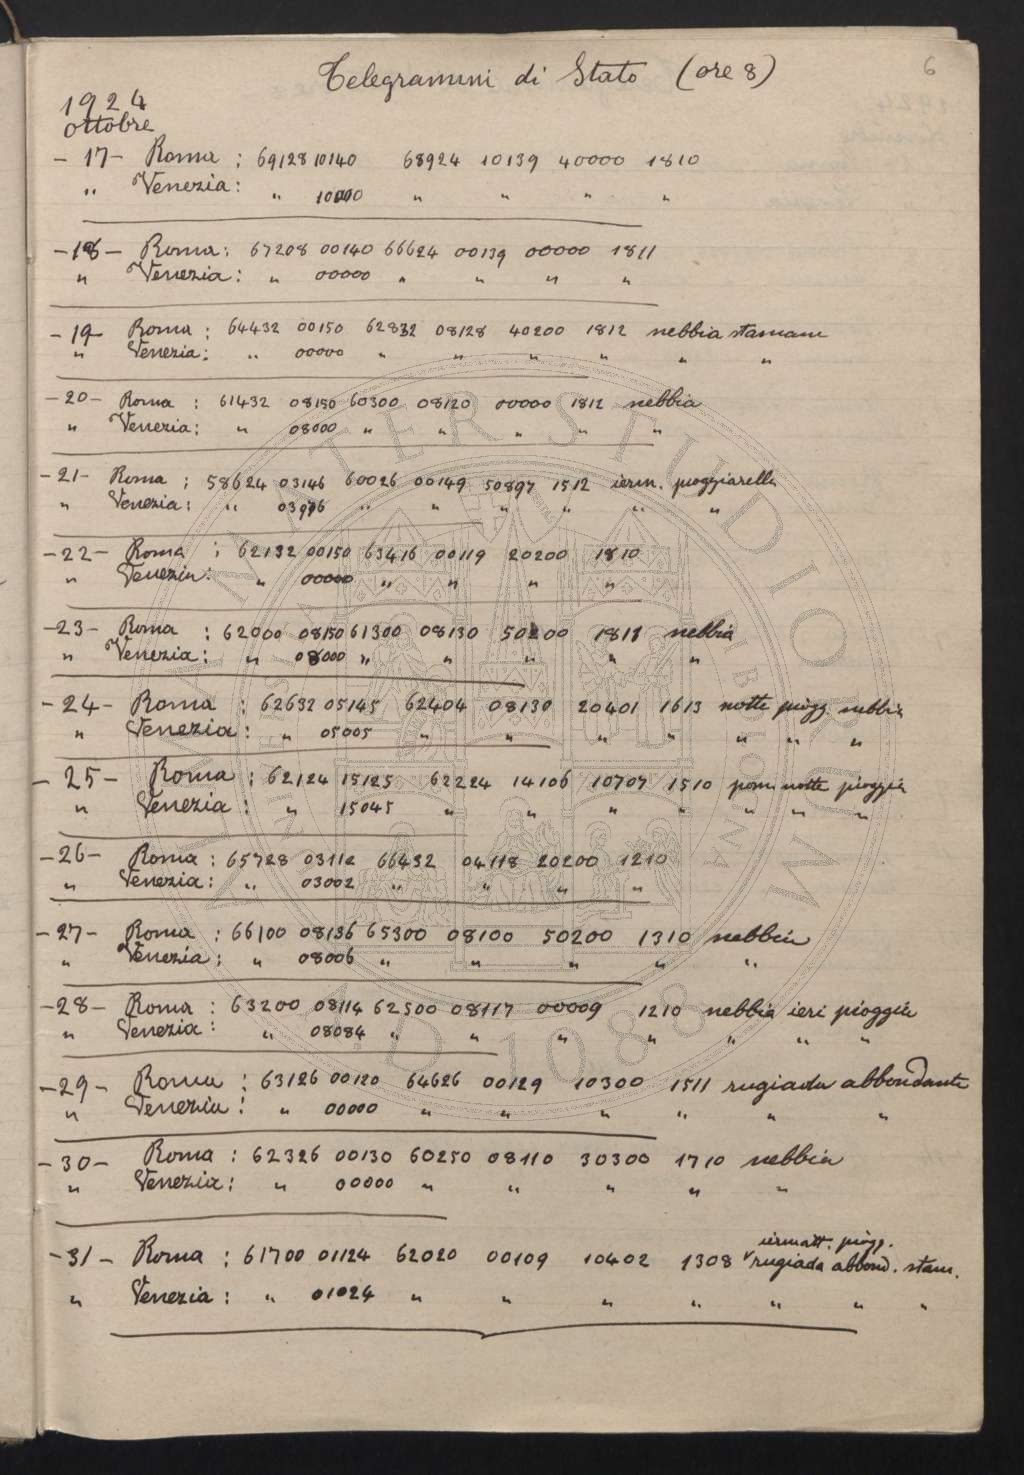 6
Telegrammi di Stato (ore 8)
1924
Ottobre
-17- Roma : 69128 10140 68924 10139 40000 1810
" Venezia : " 10000 " " " "
-18- Roma : 67208 00140 66624 00139 00000 1811
" Venezia : " 00000 " " " "
-19- Roma : 64432 00150 62832 08128 40200 1812 nebbia stamane
" Venezia : " 00000 " " " " " "
-20- Roma : 61432 08150 60300 08120 00000 1812 nebbia
" Venezia : " 08000 " " " " "
-21- Roma : 58624 03146 60026 00149 50897 1512 ierm. pioggiarella
" Venezia : " 03976 " " " " " "
-22- Roma : 62132 00150 63416 00119 20200 1810
" Venezia : " 00000 " " " "
-23- Roma : 62000 08150 61300 08130 50200 1811 nebbia
" Venezia : " 08000 " " " " "
-24- Roma : 62632 05145 62404 08130 20401 1613 notte piogg. nebbia
" Venezia : " 05005 " " " " " " "
-25- Roma : 62124 15125 62224 14106 10707 1510 pom. notte pioggia
" Venezia : " 15045 " " " " " " "
-26- Roma : 65728 03112 66432 04118 20200 1210
" Venezia : " 03002 " " " "
-27- Roma : 66100 08136 65300 08100 50200 1310 nebbia
" Venezia : " 08006 " " " " "
-28- Roma : 63200 08114 62500 08117 00009 1210 nebbia ieri pioggia
" Venezia : " 08084 " " " " " " "
-29- Roma : 63126 00120 64626 00129 10300 1511 rugiada abbondante
" Venezia : " 00000 " " " " " "
-30- Roma : 62326 00130 60250 08110 30300 1710 nebbia
" Venezia : " 00000 " " " " "
iermatt. piogg.
-31- Roma : 61700 01124 62020 00109 10402 1308 rugiada abbond. stam.
" Venezia : " 01024 " " " " " " "
ALMA MATER STUDIORUM
A.D. 1088